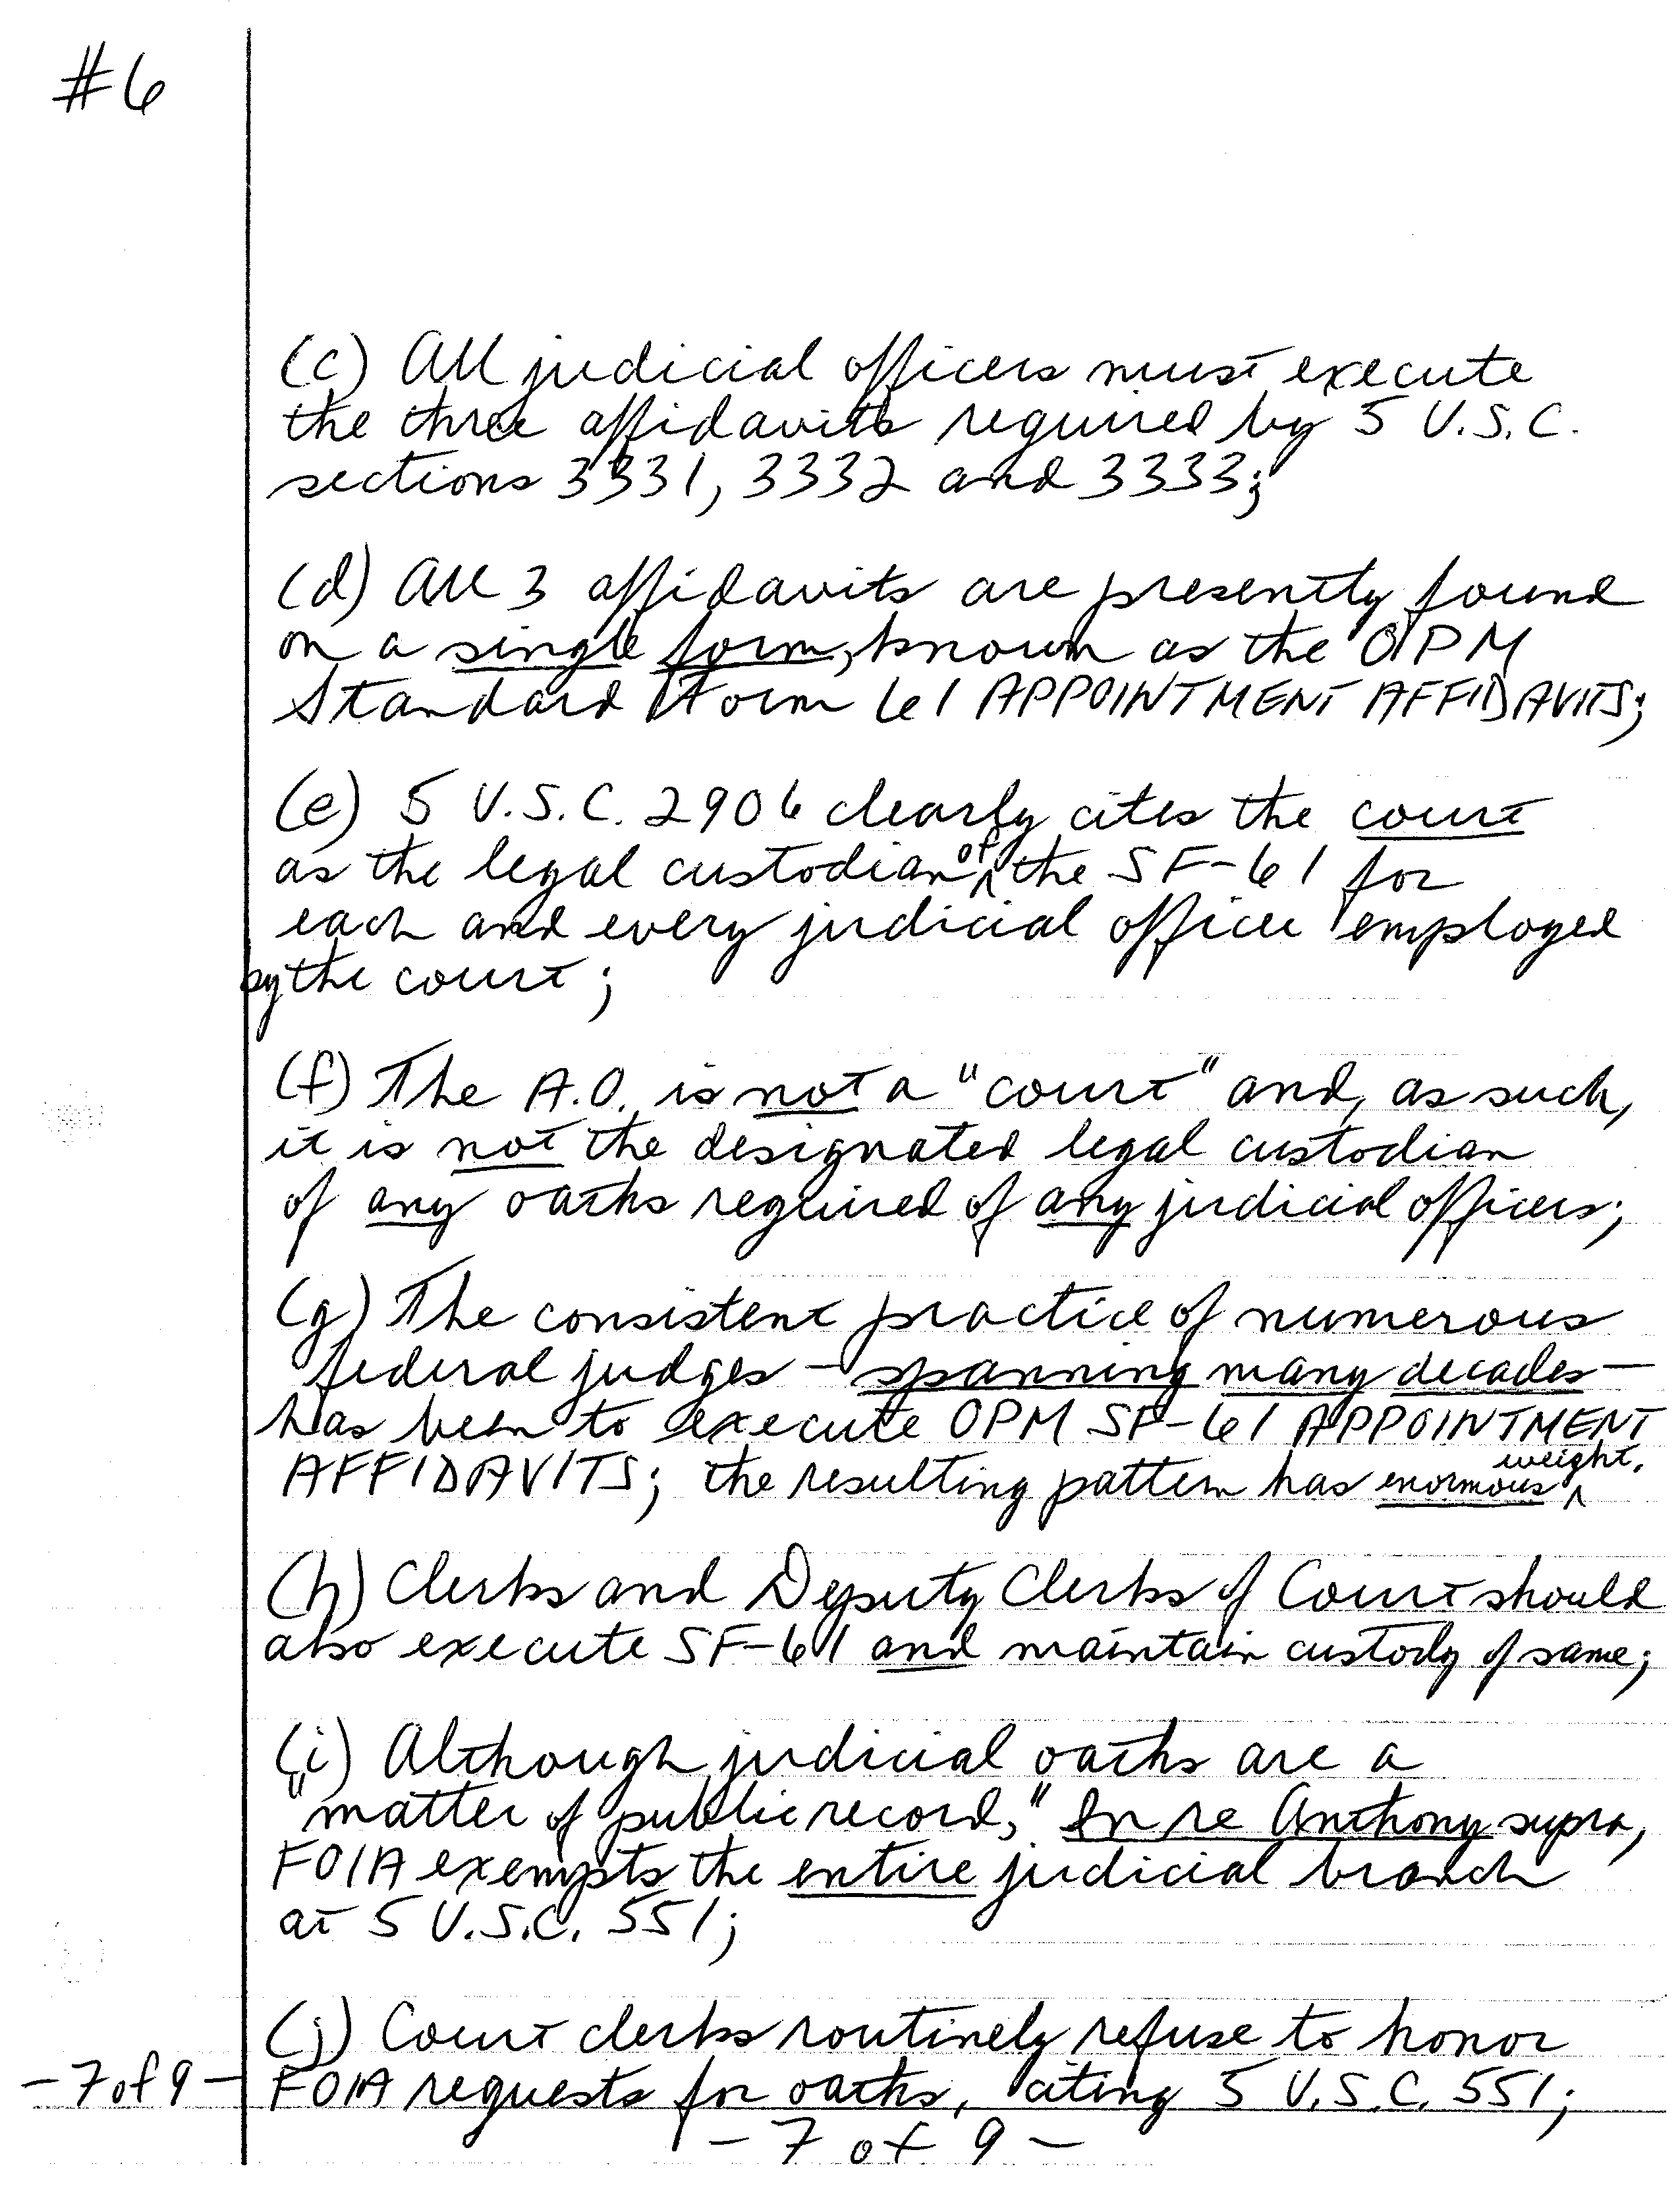 #6
(c) All judicial officers must execute
the three affidavits required by 5 U.S.C.
sections 3331, 3332 and 3333;
(d) All 3 affidavits are presently found
on a single form, known as the OPM
Standard Form 61 APPOINTMENT AFFIDAVITS;
(e) 5 U.S.C. 2906 clearly cites the court
as the legal custodian of the SF-61 for
each and every judicial officer employed
by the court;
(f) The A.O. is not a "court" and, as such,
it is not the designated legal custodian
of any oaths required of any judicial officers;
(g) The consistent practice of numerous
federal judges - spanning many decades -
has been to execute OPM SF-61 APPOINTMENT
AFFIDAVITS; the resulting pattern has enormous weight.
(h) Clerks and Deputy Clerks of Court should
also execute SF-61 and maintain custody of same;
(i) Although judicial oaths are a
"matter of public record," In re Anthony supra,
FOIA exempts the entire judicial branch
at 5 U.S.C. 551;
(j) Court clerks routinely refuse to honor
FOIA requests for oaths, citing 5 U.S.C. 551;
- 7 of 9 -
- 7 of 9 -